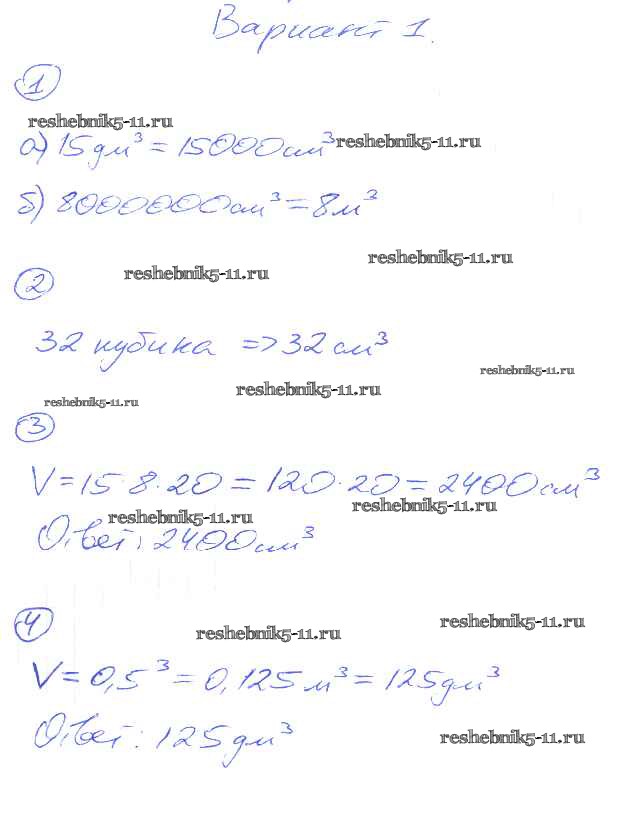 Вариант 1.
1
reshebnik5-11.ru
а) 15 дм³ = 15000 см³ reshebnik5-11.ru
б) 8000000 см³ = 8 м³
reshebnik5-11.ru
2 reshebnik5-11.ru
32 кубика => 32 см³
reshebnik5-11.ru
reshebnik5-11.ru
reshebnik5-11.ru
3
V = 15 · 8 · 20 = 120 · 20 = 2400 см³
reshebnik5-11.ru
reshebnik5-11.ru
Ответ: 2400 см³
4
reshebnik5-11.ru
reshebnik5-11.ru
V = 0,5³ = 0,125 м³ = 125 дм³
Ответ: 125 дм³
reshebnik5-11.ru